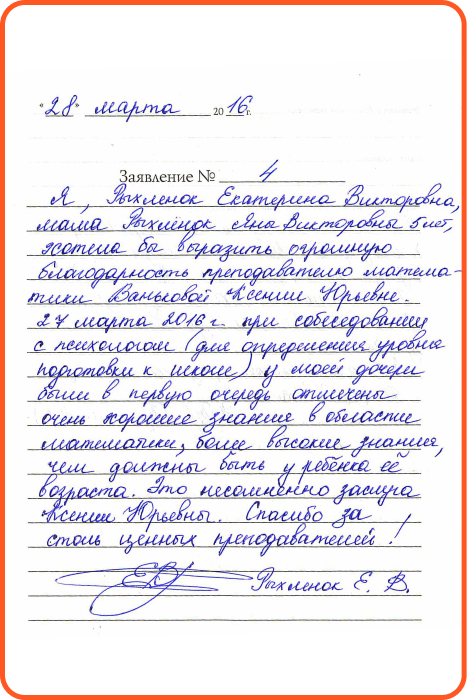 "28" марта 2016г.
Заявление № 4
Я, Рыхленок Екатерина Викторовна,
мама Рыхленок Яны Викторовны 5 лет,
хотела бы выразить огромную
благодарность преподавателю матема-
тики Ваньковой Ксении Юрьевне.
27 марта 2016 г. при собеседовании
с психологом (для определения уровня
подготовки к школе) у моей дочери
были в первую очередь отмечены
очень хорошие знания в области
математики, более высокие знания,
чем должны быть у ребёнка её
возраста. Это несомненно заслуга
Ксении Юрьевны. Спасибо за
столь ценных преподавателей!
Рыхленок Е. В.